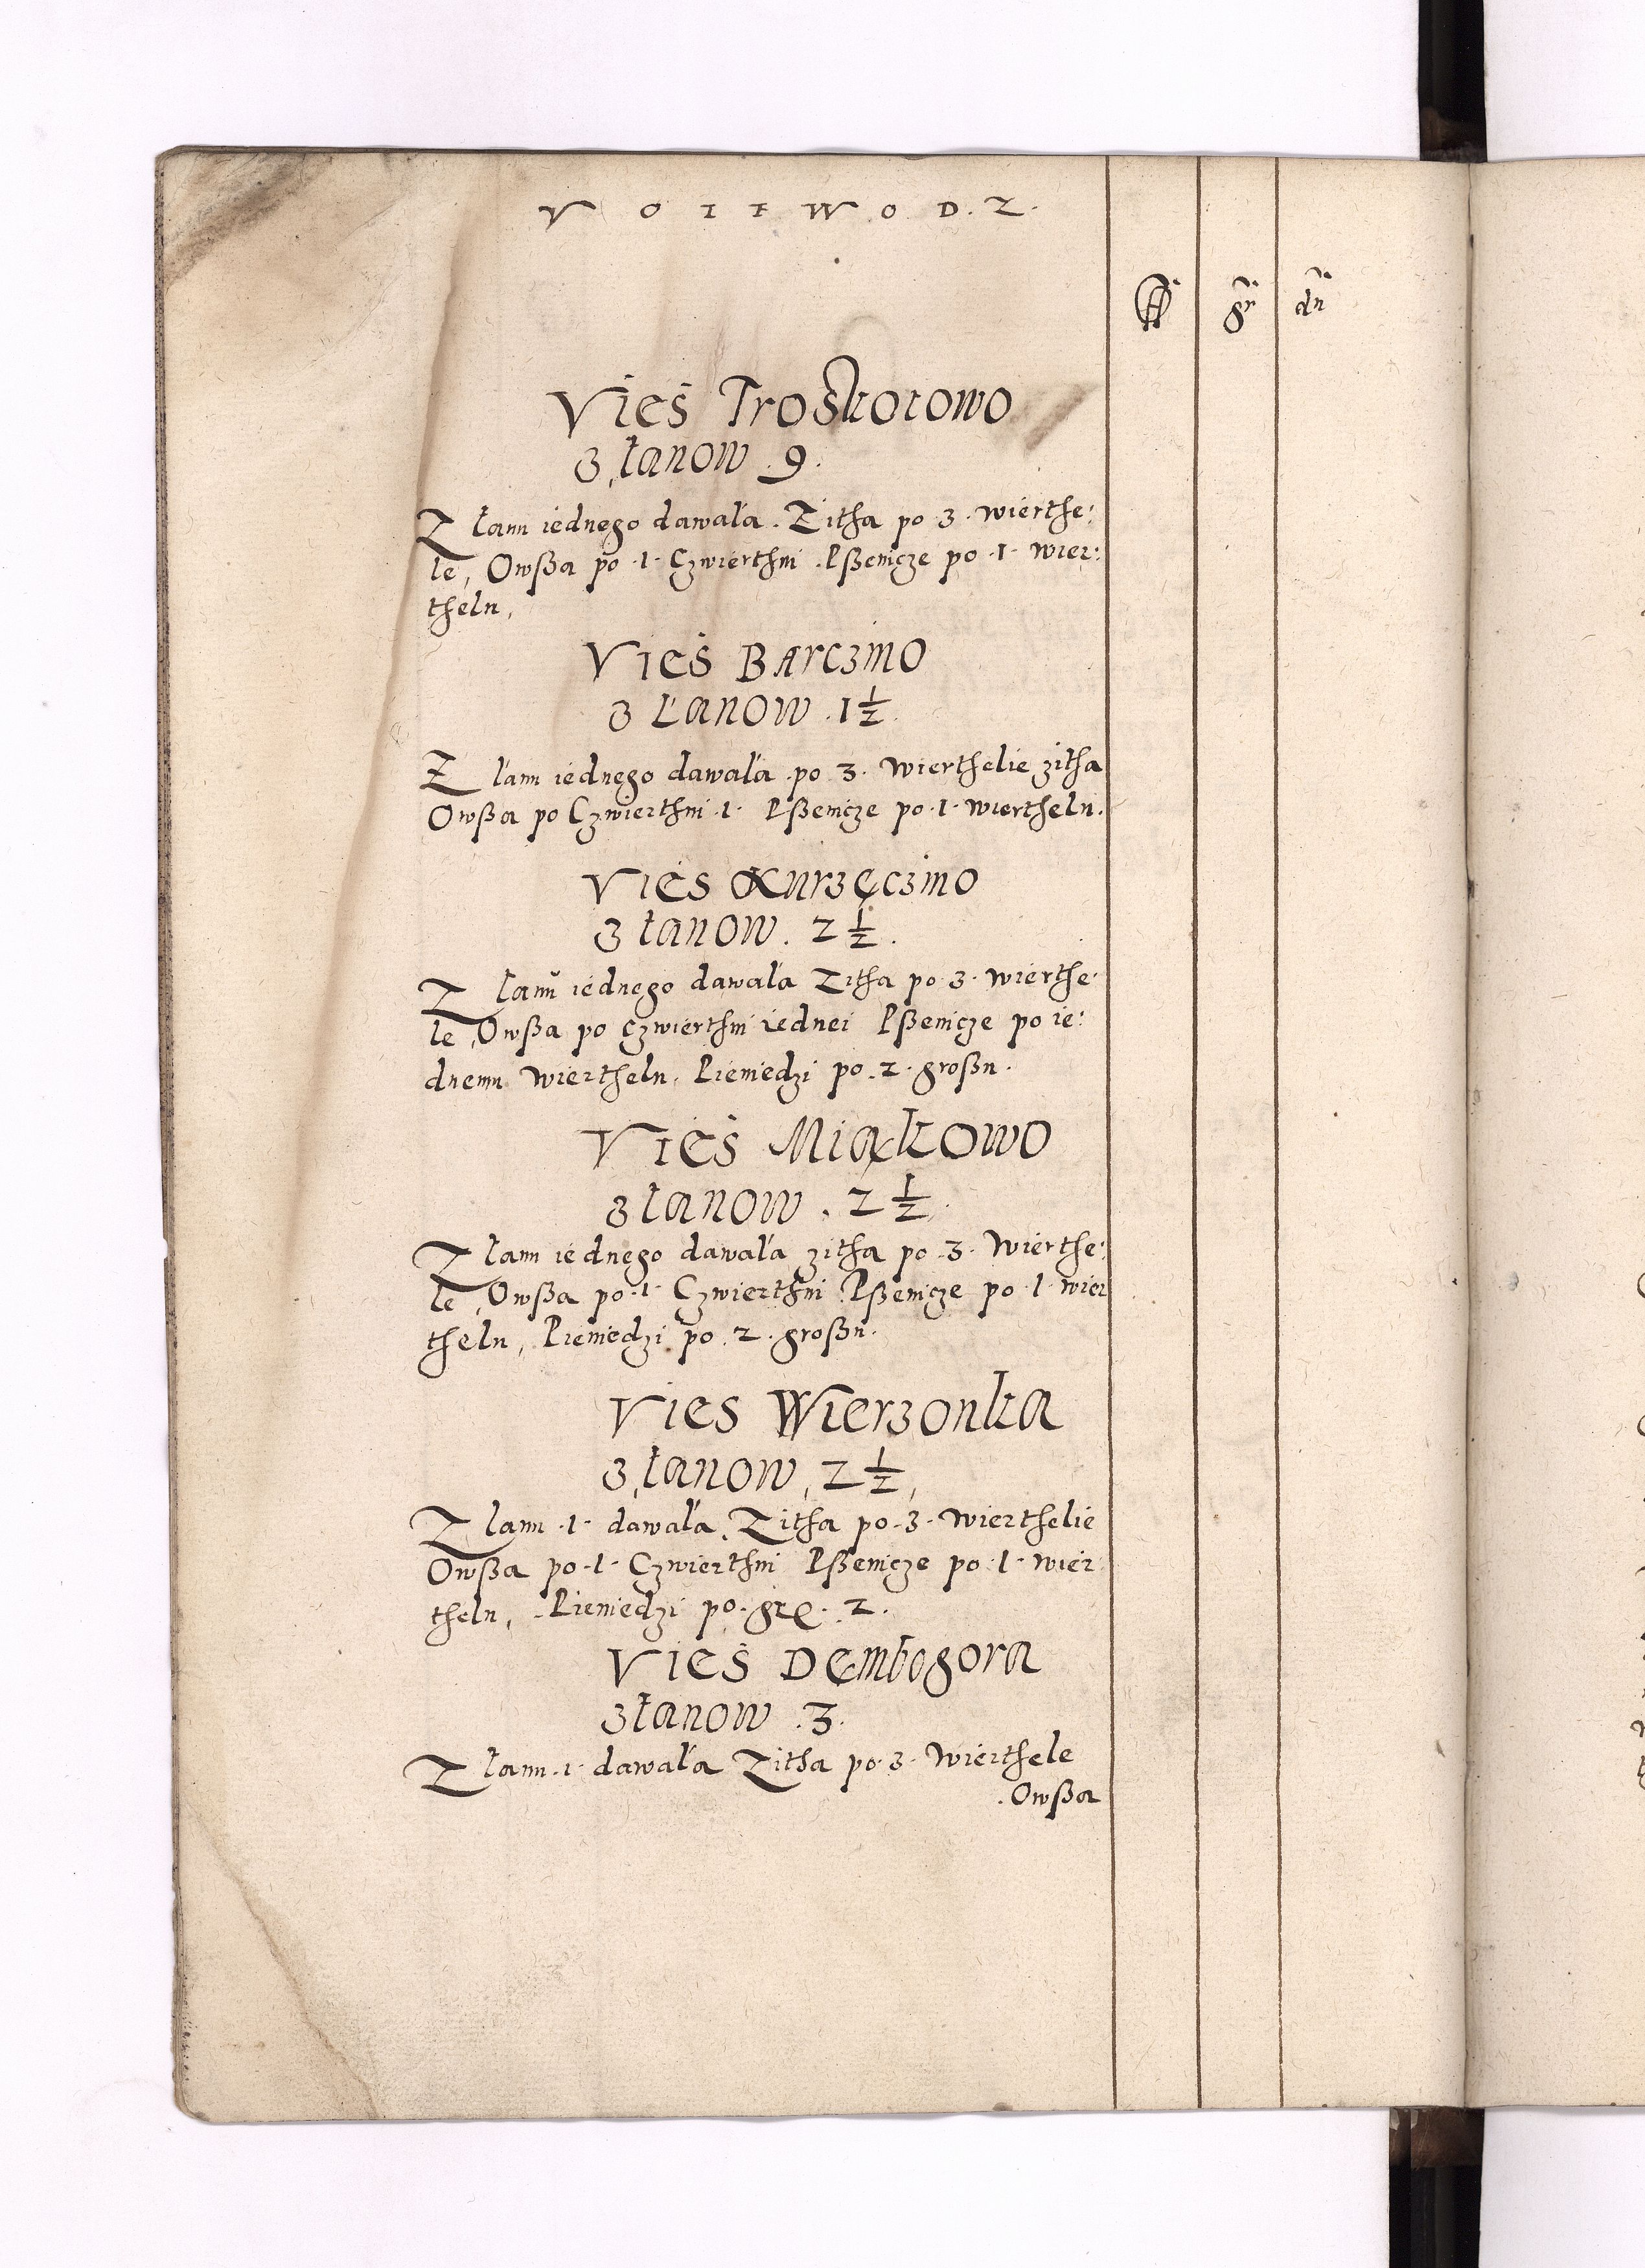 VOIEWODZ.
fl gr dn
Vieś Troskotowo
z łanow 9.
Z łanu iednego dawaia. Zitha po 3. wierthe:
le, Owßa po .1. Czwierthni Pßenicze po .1. wier:
thelu,
Vieś Barczino
z Łanow .1½.
Z łanu iednego dawaia po 3. wierthelie zitha
Owßa po Czwierthni .1. Pßenicze po .1. wierthelu.
Vieś Kurzęczino
z łanow. 2½.
Z łanu iednego dawaia Zitha po 3. wierthe:
le, Owßa po czwierthni iednei Pßenicze po ie:
dnemu wierthelu, Pieniedzi po .2. großu.
Vieś Miąkowo
z łanow. 2½.
Z łanu iednego dawaia zitha po .3. wierthe:
le, Owßa po .1. Czwierthni Pßenicze po .1. wier
thelu, Pieniedzi po .2. großu.
Vies Wierzonka
z łanow, 2½,
Z łanu .1. dawaia Zitha po .3. wierthelie
Owßa po .1. Czwierthni Pßenicze po .1. wier
thelu, Pieniedzi po. gr. 2.
Vieś Dęmbogora
z łanow .3.
Z łanu .1. dawaia Zitha po .3. wierthele
.Owßa